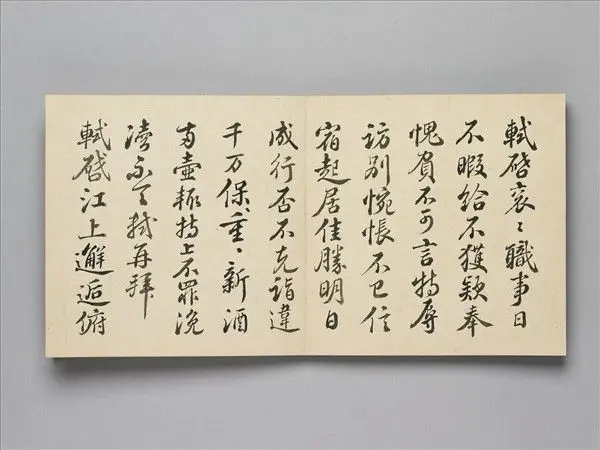 軾啓衮〻職事日
不暇給不獲欵奉
愧負不可言特辱
訪別惋悵不已信
宿起居佳勝明日
成行否不克詣違
千万保〻重〻新酒
兩壺輒持上不罪浼
瀆不宣軾再拜
軾啓江上邂逅俯